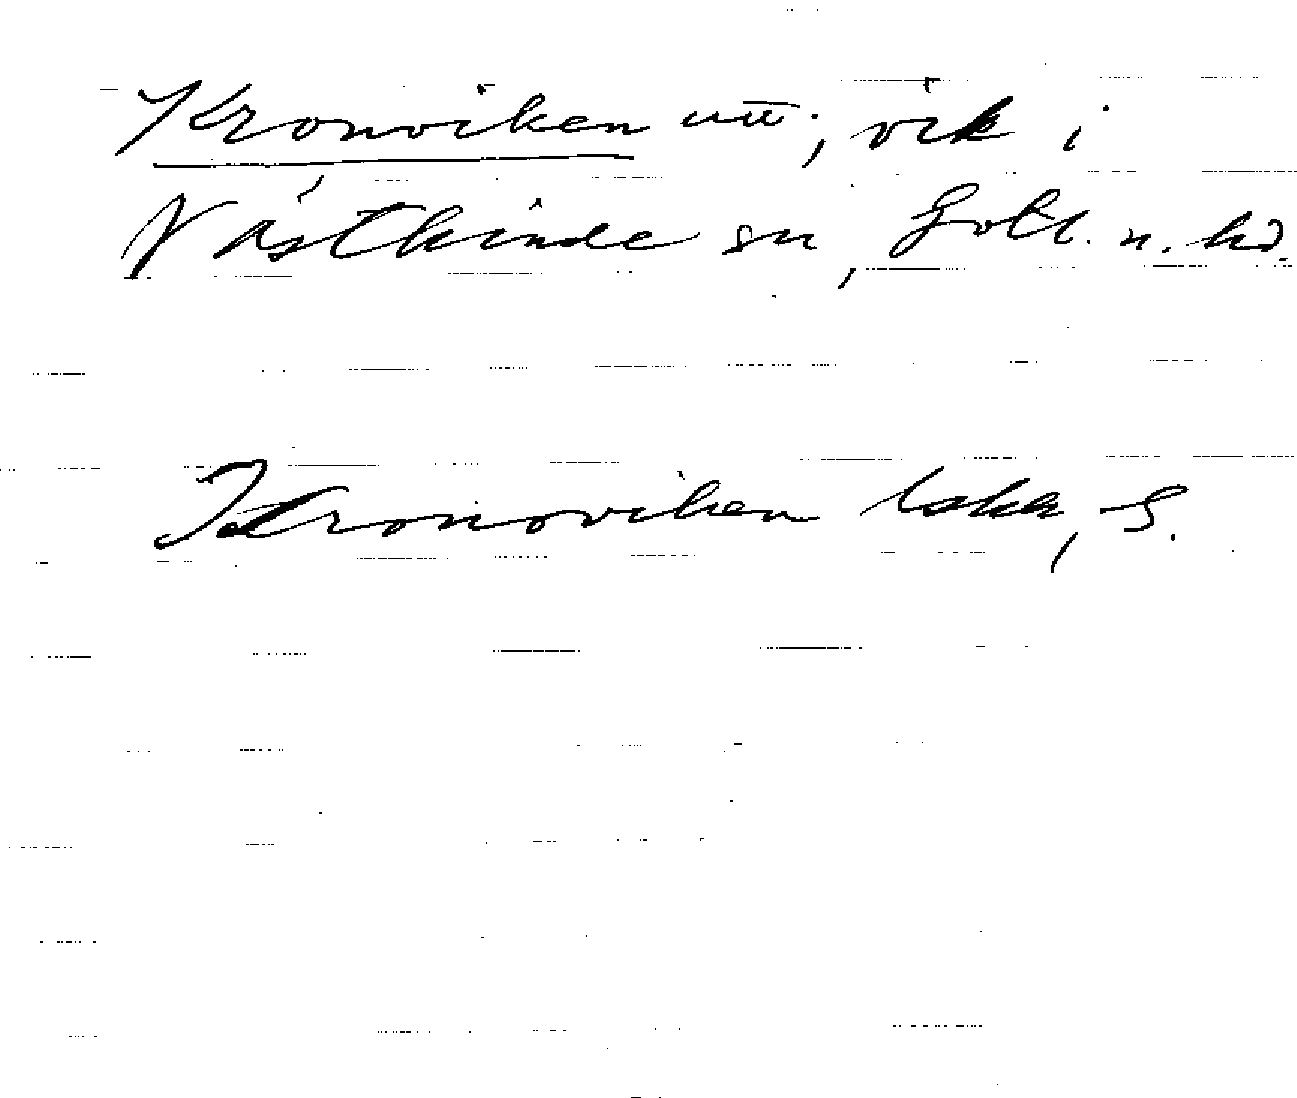 Kronviken utt.; vik i
Västkinde sn, Gotl. n. hd.
Kronoviken laka, S.